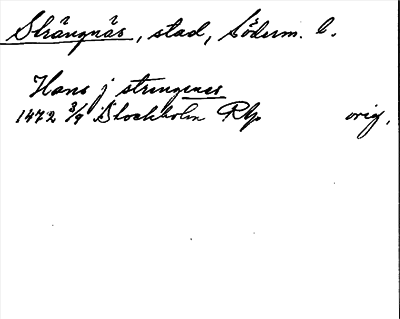 Strängnäs, stad, Söderm. l.
Hans j strengenes
1472 3/9 Stockholm RAp orig.